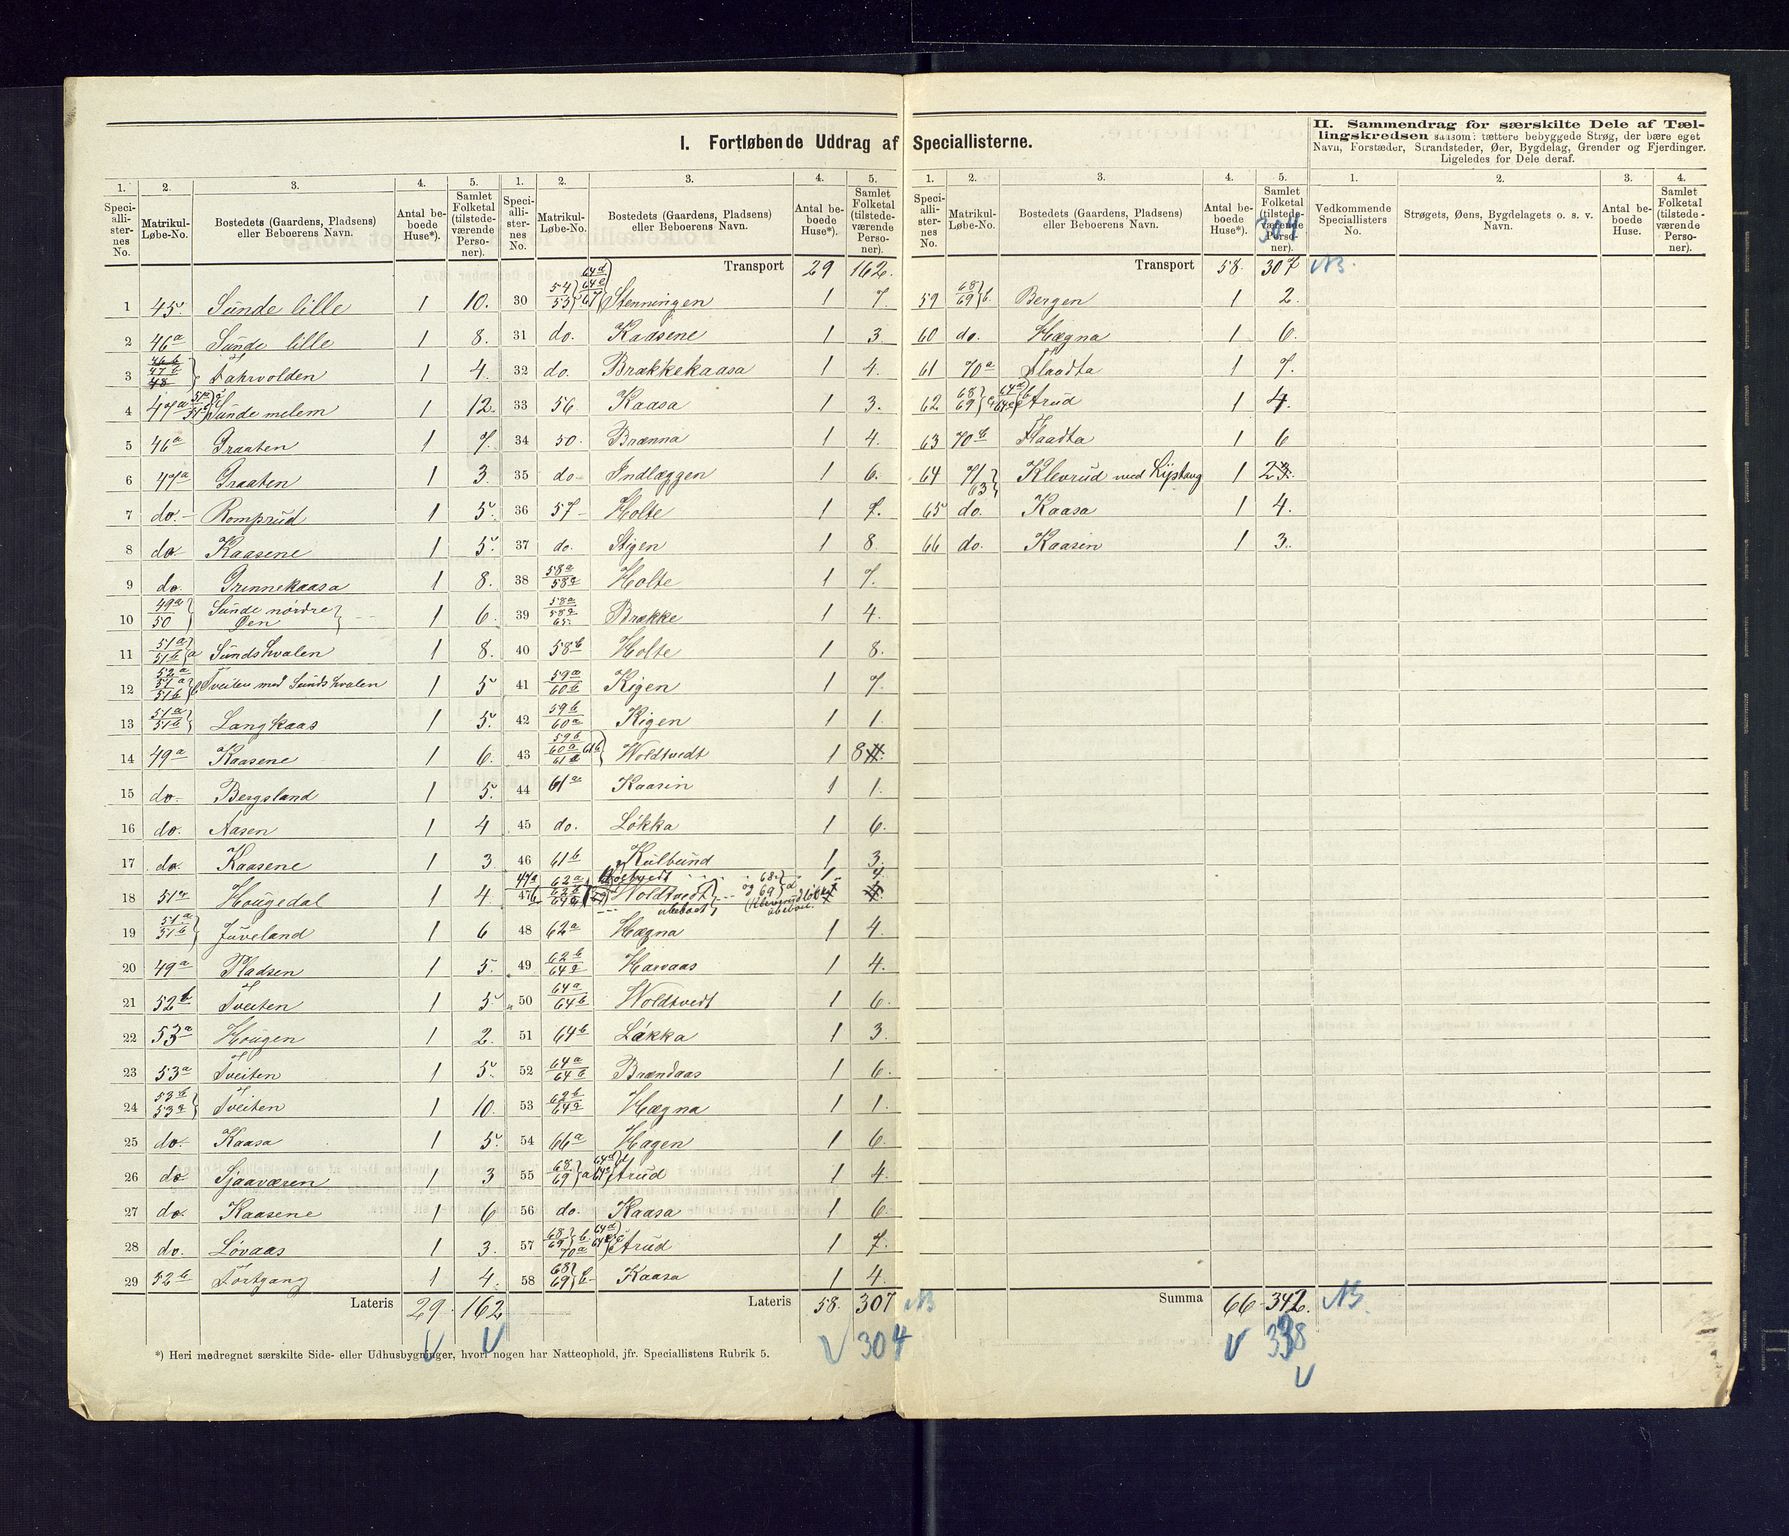 I. Fortløbende Uddrag af Speciallisterne.
II. Sammendrag for særskilte Dele af Tæl-
lingskredsen saasom: tættere bebyggede Strøg, der bære eget
Navn, Forstæder, Strandsteder, Øer, Bygdelag, Grender og Fjerdinger.
Ligeledes for Dele deraf.
1. 2. 3. 4. 5. 1. 2. 3. 4. 5.
Speci-allister-nes No. Matrikul-Løbe-No. Bostedets (Gaardens, Pladsens) eller Beboerens Navn. Antal be-boede Huse*). Samlet Folketal (tilstede-værende Perso-ner).
Transport 29 162.
1 45. Sunde lille 1 10.
2 46a Sunde lille 1 8.
3 46b 47b 48 Fahrvolden 1 4.
4 47a Sunde melem 1 12.
5 46a Graaten 1 7.
6 47a Graaten 1 3
7 do. Romprud 1 5.
8 do Kaasene 1 5.
9 do. Grinnekaasa 1 8.
10 49a 50 Sunde nørdre Øen 1 6.
11 51a 51b a Sundshvalen 1 8.
12 52a 51a 51b Tveiten med Sundshvalen 1 5
13 51a 51b Langkaas 1 5.
14 49a Kaasene 1 6.
15 do. Bergsland 1 5.
16 do. Aasen 1 4
17 do. Kaasene 1 3
18 51a Hougedal 1 4
19 51a 51b Juveland 1 6
20 49a Pladsen 1 5.
21 52b Tveiten 1 5.
22 53a Hougen 1 2.
23 53a Tveiten 1 5.
24 53b 53a Tveiten 1 10.
25 do. Kaasa 1 5.
26 do Sjaaværen 1 3
27 do. Kaasene 1 6
28 do. Løvaas 1 3.
29 52b Tortgang 1 4.
Lateris 29. 162
V V
30 54 55 64d 64e 67 Stenningen 1 7.
31 do. Kaasene 1 3
32 do. Brækkekaasa 1 4.
33 56 Kaasa 1 3.
34 50. Brænna 1 4.
35 do. Indlæggen 1 6.
36 57 Holte 1 7.
37 do. Stigen 1 8
38 58a 58a Holte 1 7.
39 58a 58a 65. Brække 1 4.
40 58b Holte 1 8.
41 59a 60b Kigen 1 7.
42 59b 60a Kigen 1 1.
43 59b 60a 61b Woldtvedt 1 8
44 61a Kaasin 1 1.
45 do. Løkka 1 6.
46 61b Kulbund 1 3.
47a 62a 1 4
47b 62b 64a Woldtvedt og 68. 69 d ubeboet
48 62a Hægna 1 4.
49 62b 64a Harvaas 1 4.
50 64a 64b Woldtvedt 1 6.
51 64b Løkka 1 3.
52 64a 64b Brændaas 1 6.
53 62b 64a Hægna 1 1.
54 66a Hagen 1 6.
55 68 69 a Aarud 1 4.
56 do. Kaasa 1 6.
57 68 69 b. 70a Aarud 1 7.
58 68 69 b. Kaasa 1 4.
Lateris 58. 307 NB
V 304
*) Heri medregnet særskilte Side- eller Udhusbygninger, hvori nogen har Natteophold, jfr. Speciallistens Rubrik 5.
1. 2. 3. 4. 5. 1. 2. 3. 4.
Speci-allister-nes No. Matrikul-Løbe-No. Bostedets (Gaardens, Pladsens) eller Beboerens Navn. Antal be-boede Huse*). Samlet Folketal (tilstede-værende Perso-ner).
Vedkommende Speciallisters No. Strøgets, Øens, Bygdelagets o. s. v. Navn. Antal beboede Huse. Samlet Folketal (tilstede-værende Perso-ner).
304
Transport 58. 307 NB.
59 68 69 b. Bergen 1 2.
60 do. Hægna 1 6.
61 70a Flaadta 1 7.
62 68 69 Aarud 1 4.
63 70b Flaadta 1 6
64 71 63 Klevrud med Lystang 1 2
65 do. Kaasa 1 4.
66 do. Kaasin 1 3.
Summa 66 342. NB.
V 338
V